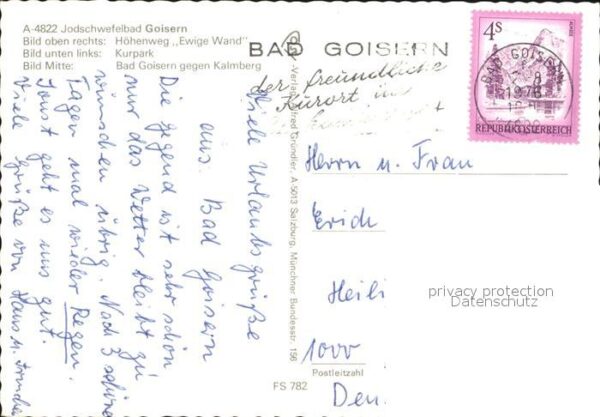 A-4822 Jodschwefelbad Goisern
Bild oben rechts: Höhenweg „Ewige Wand"
Bild unten links: Kurpark
Bild Mitte: Bad Goisern gegen Kalmberg
BAD GOISERN
der freundliche
Kurort im
4S
REPUBLIK ÖSTERREICH
BAD GOISERN
1978
4822
Viele Urlaubsgrüße
aus Bad Goisern
Die Gegend ist sehr schön
nur das Wetter bleibt zu
wünschen übrig. Nach 3 schönen
Tagen mal wieder Regen.
Sonst geht es uns gut.
Viele Grüße von Hans u.
Verlag Alfred Gründler, A-5013 Salzburg, Münchner Bundesstr. 156
Herrn u. Frau
Erich
Heili
1000
Postleitzahl
FS 782
privacy protection
Datenschutz